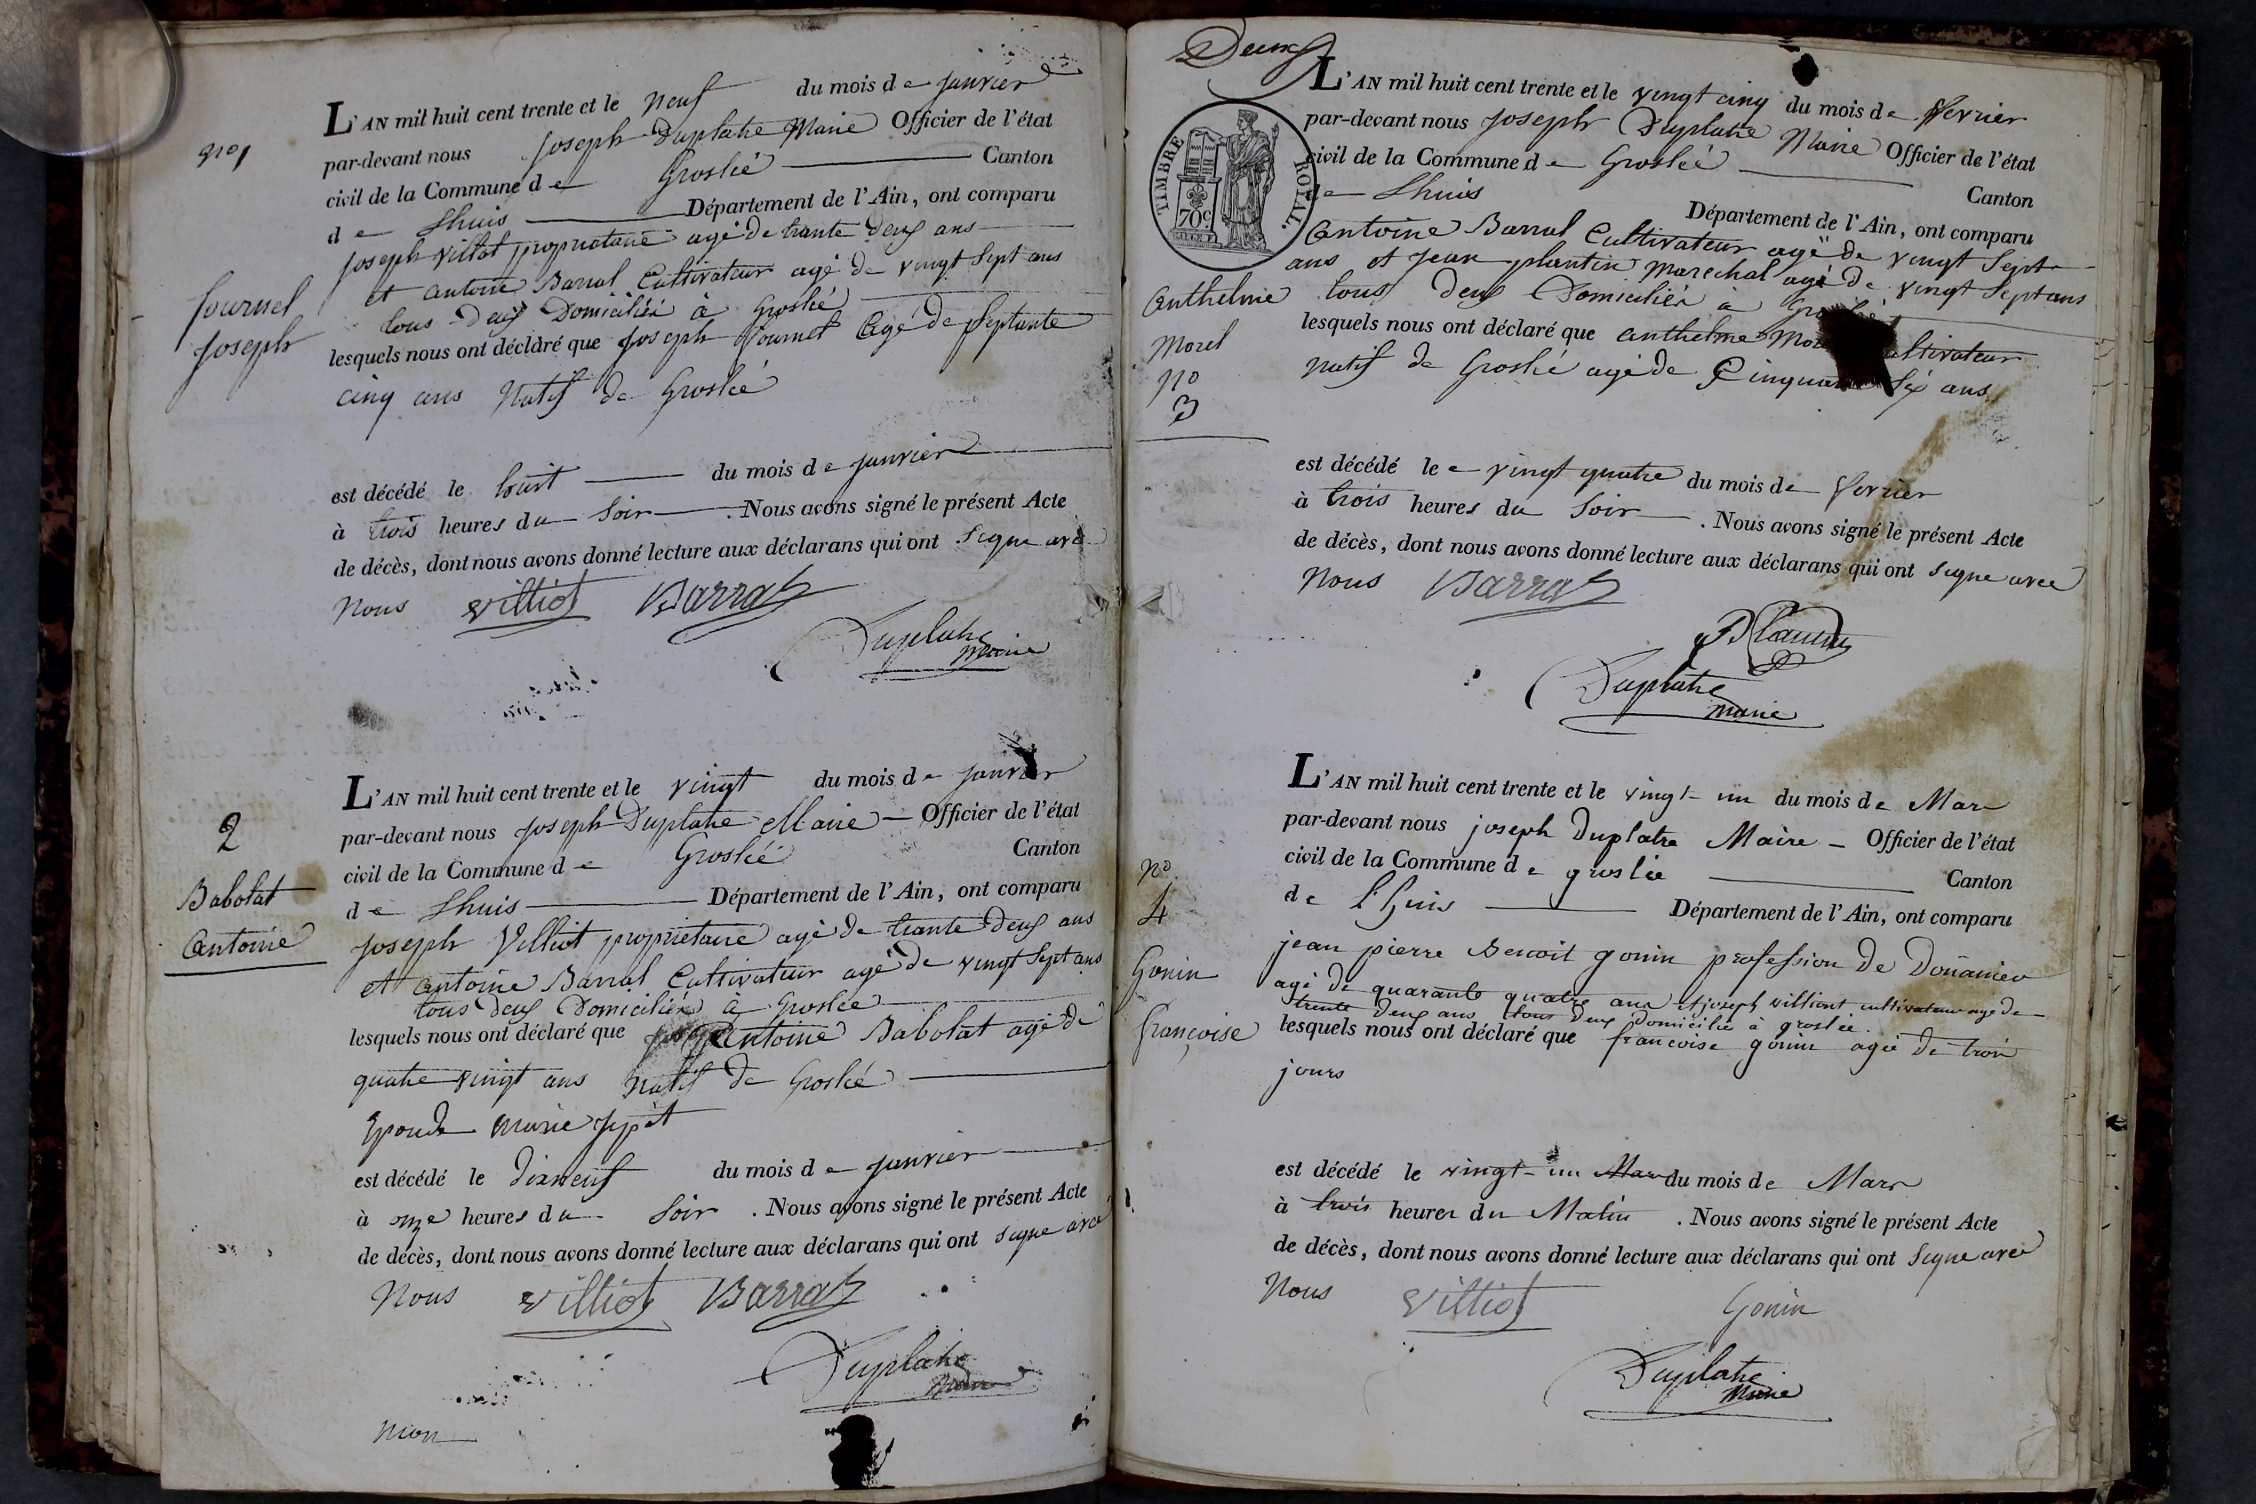 nº 1
fournel
joseph
L'AN mil huit cent trente et le neuf du mois de janvier
par-devant nous joseph Duplatre Maire Officier de l'état
civil de la Commune de Groslée Canton
de Lhuis Département de l'Ain, ont comparu
joseph villiot propriétaire agé de trante deux ans
et antoine Barral Cultivateur agé de vingt sept ans
tous deux Domiciliés à Groslée
lesquels nous ont déclaré que joseph fournel agé de septante
cinq ans Natif de Groslée
est décédé le huit du mois de janvier
à trois heures du soir . Nous avons signé le présent Acte
de décès, dont nous avons donné lecture aux déclarans qui ont signe avec
Nous villiot Barral
Duplatre
Maire
2
Babolat
Antoine
L'AN mil huit cent trente et le vingt du mois de janvier
par-devant nous joseph Duplatre Maire Officier de l'état
civil de la Commune de Groslée Canton
de Lhuis Département de l'Ain, ont comparu
joseph Villiot propriétaire agé de trante deux ans
et antoine Barral Cultivateur agé de vingt sept ans
tous deux Domiciliés à Groslée
lesquels nous ont déclaré que antoine Babolat agé de
quatre vingt ans natif de Groslée
Epoux de Marie
est décédé le dixneuf du mois de janvier
à onze heures du soir . Nous avons signé le présent Acte
de décès, dont nous avons donné lecture aux déclarans qui ont signe avec
Nous villiot Barral
Duplatre
Maire
Deux
TIMBRE ROYAL.
70c.
Anthelme
Morel
nº
3
L'AN mil huit cent trente et le vingt cinq du mois de fevrier
par-devant nous joseph Duplatre Maire Officier de l'état
civil de la Commune de Groslée Canton
de Lhuis Département de l'Ain, ont comparu
Antoine Barral Cultivateur agé de vingt sept
ans et jean plantin marechal agé de vingt sept ans
tous deux Domiciliés à
lesquels nous ont déclaré que anthelme
natif de Groslée agé de six ans
est décédé le vingt quatre du mois de fevrier
à trois heures du soir . Nous avons signé le présent Acte
de décès, dont nous avons donné lecture aux déclarans qui ont signe avec
Nous Barral
Duplatre
maire
nº
4
Gonin
françoise
L'AN mil huit cent trente et le vingt-un du mois de Mars
par-devant nous joseph Duplatre Maire Officier de l'état
civil de la Commune de groslée Canton
de L'huis Département de l'Ain, ont comparu
jean pierre Benoit gonin profession de Douanier
agé de quarante quatre ans et joseph villiont cultivateur agé de
trente deux ans tous deux domicilié à groslée.
lesquels nous ont déclaré que francoise gonin agée de trois
jours
est décédé le vingt-un Mars du mois de Mars
à trois heures du Matin . Nous avons signé le présent Acte
de décès, dont nous avons donné lecture aux déclarans qui ont signe avec
Nous villiot Gonin
Duplatre
Maire